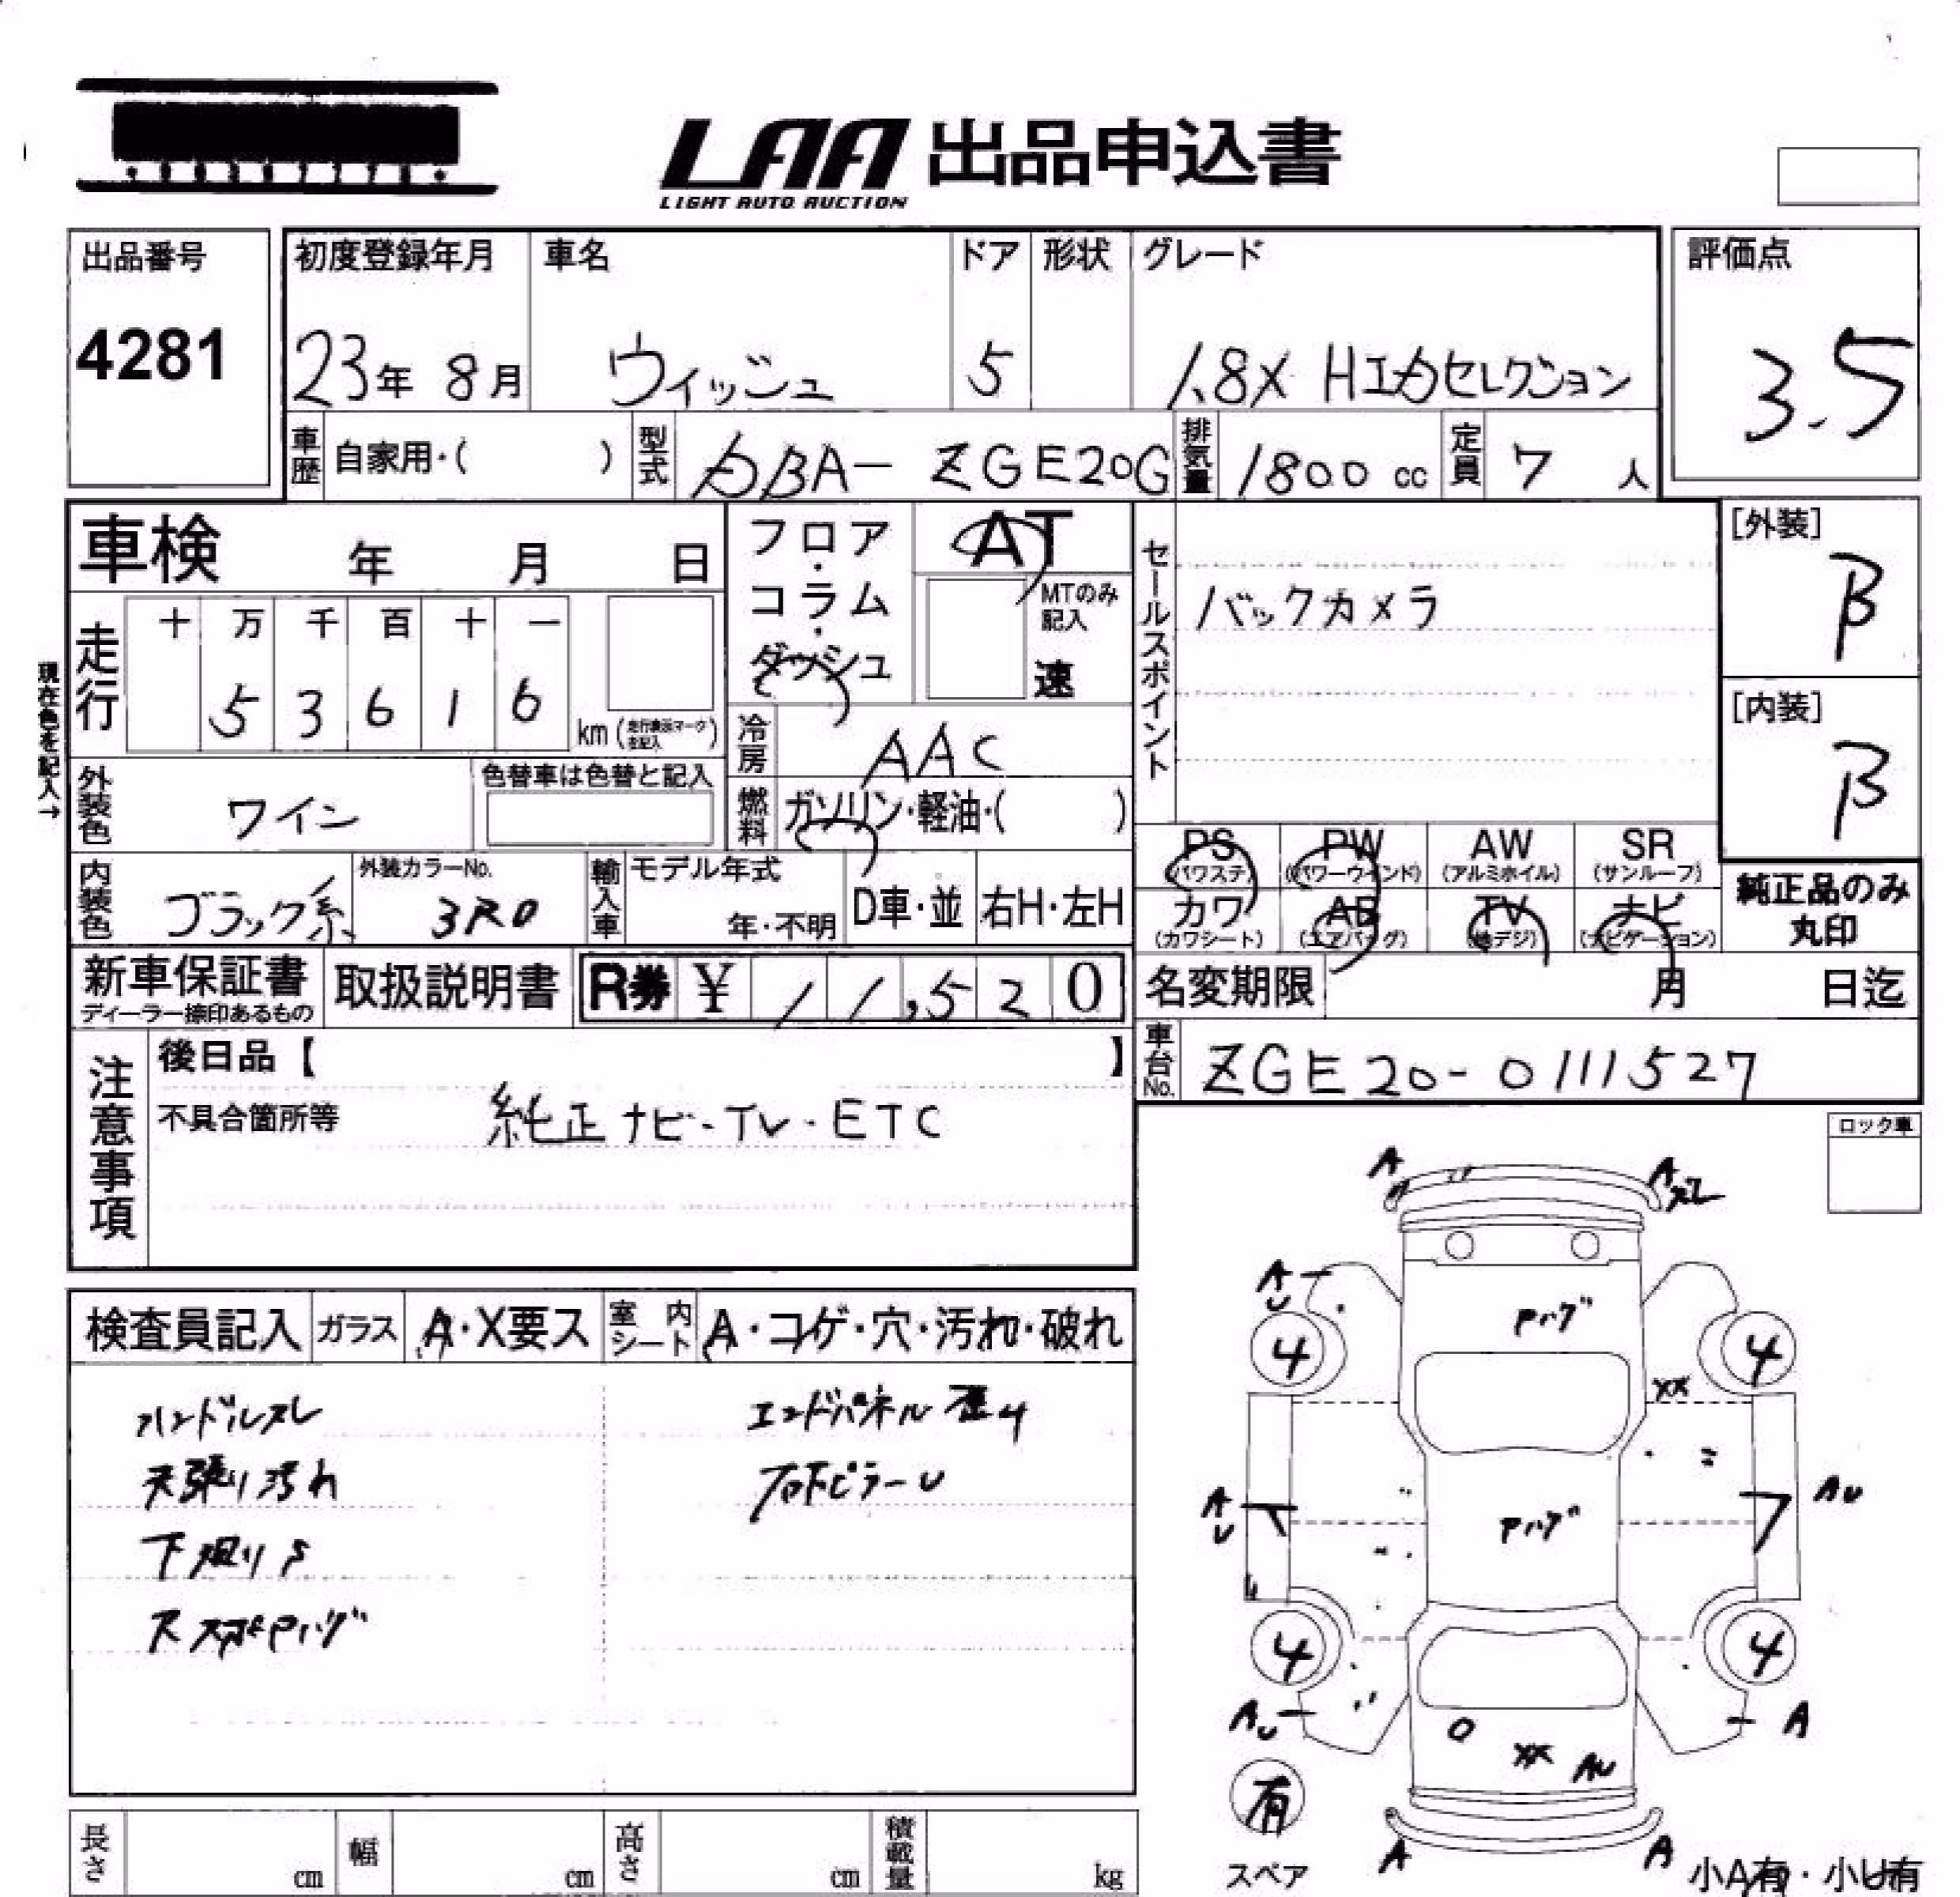 LAA 出品申込書
LIGHT AUTO AUCTION
出品番号
4281
初度登録年月
23年 8月
車名
ウィッシュ
ドア
5
形状
グレード
1.8X HIDセレクション
評価点
3.5
車歴
自家用・( )
型式
DBA- ZGE20G
排気量
1800 cc
定員
7 人
車検 年 月 日
フロア・コラム・ダッシュ
AT
MTのみ記入
速
セールスポイント
バックカメラ
[外装]
B
[内装]
B
現在色を記入→
走行
十 万 千 百 十 一
5 3 6 1 6
km (走行表示マークを記入)
冷房
AAC
外装色
ワイン
色替車は色替と記入
燃料
ガソリン・軽油・( )
内装色
ブラック系
外装カラーNo.
3R0
輸入車
モデル年式
年・不明
D車・並
右H・左H
PS (パワステ)
PW (パワーウインド)
AW (アルミホイル)
SR (サンルーフ)
カワ (カワシート)
AB (エアバッグ)
TV (地デジ)
ナビ (ナビゲーション)
純正品のみ丸印
新車保証書
ディーラー捺印あるもの
取扱説明書
R券 ¥ 11,520
名変期限 月 日迄
車台No.
ZGE20-0111527
注意事項
後日品【 】
不具合箇所等
純正ナビ・TV・ETC
ロック車
検査員記入
ガラス
A・X要ス
室内シート
A・コゲ・穴・汚れ・破れ
ハンドルスレ
エンドパネル歪み
天張り汚れ
右下ピラーU
下廻りS
A
A
AU
Pハゲ
4
4
XX
AU
AU
Pハゲ
4
4
AU
A
XX
AU
有
スペア
A
A
小A有・小U有
長さ cm
幅 cm
高さ cm
積載量 kg